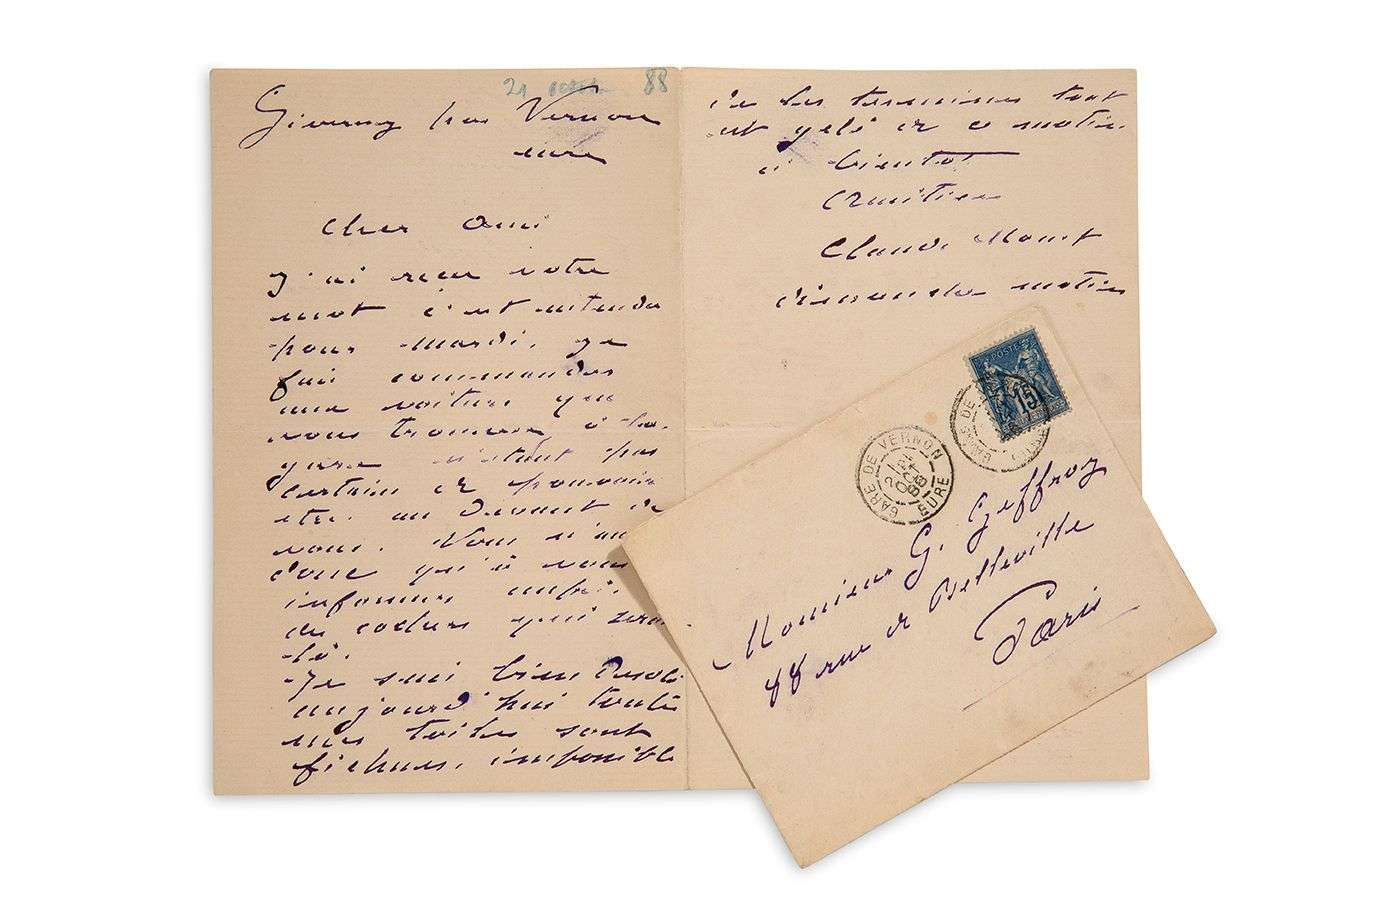 21 octobre 88
Giverny par Vernon
eure
cher ami
J'ai reçu votre
mot c'est entendu
pour mardi. je
fais commander
une voiture que
vous trouverez à la
gare n'étant pas
certain de pouvoir
être au devant de
vous. Vous n'aurez
donc qu'à vous
informer auprès
des cochers qui seront
là.
Je suis bien désolé
aujourd'hui toutes
mes toiles sont
fichues, impossible
de les terminer tout
est gelé de ce matin
à bientôt
amitiés
Claude Monet
dimanche matin
POSTE
15
GARE DE VERNON
21
OCT
88
EURE
GARE DE
Monsieur G. Geffroy
88 rue de Belleville
Paris